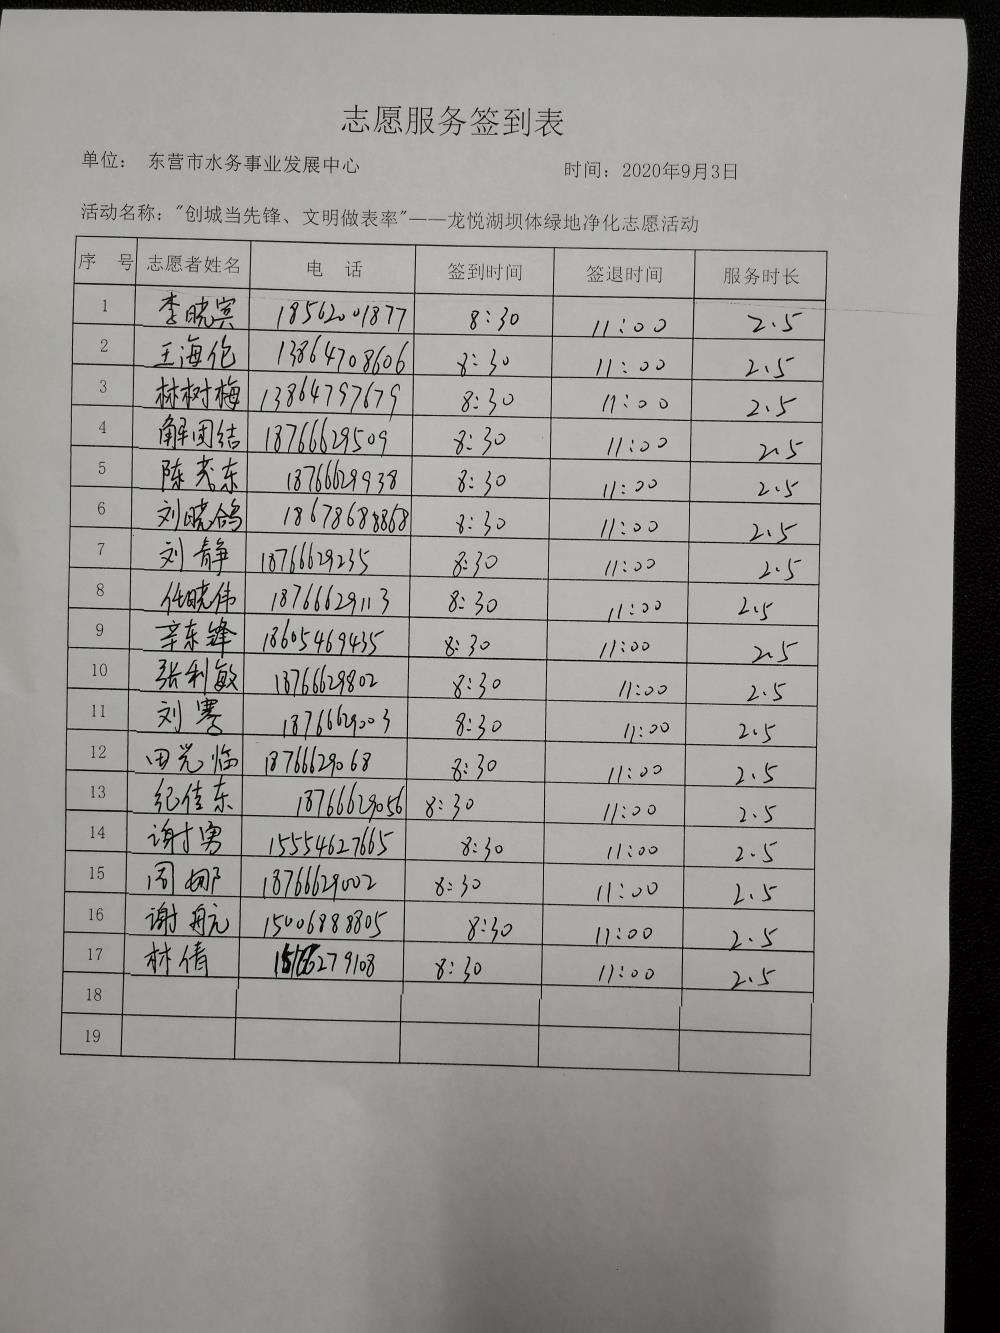 志愿服务签到表
单位： 东营市水务事业发展中心 时间：2020年9月3日
活动名称："创城当先锋、文明做表率"——龙悦湖坝体绿地净化志愿活动
序 号 志愿者姓名 电 话 签到时间 签退时间 服务时长
1 李晓宾 18562001877 8:30 11:00 2.5
2 王海伦 13864708606 8:30 11:00 2.5
3 林树梅 13864797679 8:30 11:00 2.5
4 解团结 18766629509 8:30 11:00 2.5
5 陈茂东 18766629938 8:30 11:00 2.5
6 刘晓鸽 18678688868 8:30 11:00 2.5
7 刘静 18766629235 8:30 11:00 2.5
8 任晓伟 18766629113 8:30 11:00 2.5
9 辛东锋 18605469435 8:30 11:00 2.5
10 张利敏 18766629802 8:30 11:00 2.5
11 刘骞 18766629003 8:30 11:00 2.5
12 田光临 18766629068 8:30 11:00 2.5
13 纪佳东 18766629056 8:30 11:00 2.5
14 谢勇 15554627665 8:30 11:00 2.5
15 周娜 18766629002 8:30 11:00 2.5
16 谢航 15006888805 8:30 11:00 2.5
17 林倩 8:30 11:00 2.5
18
19